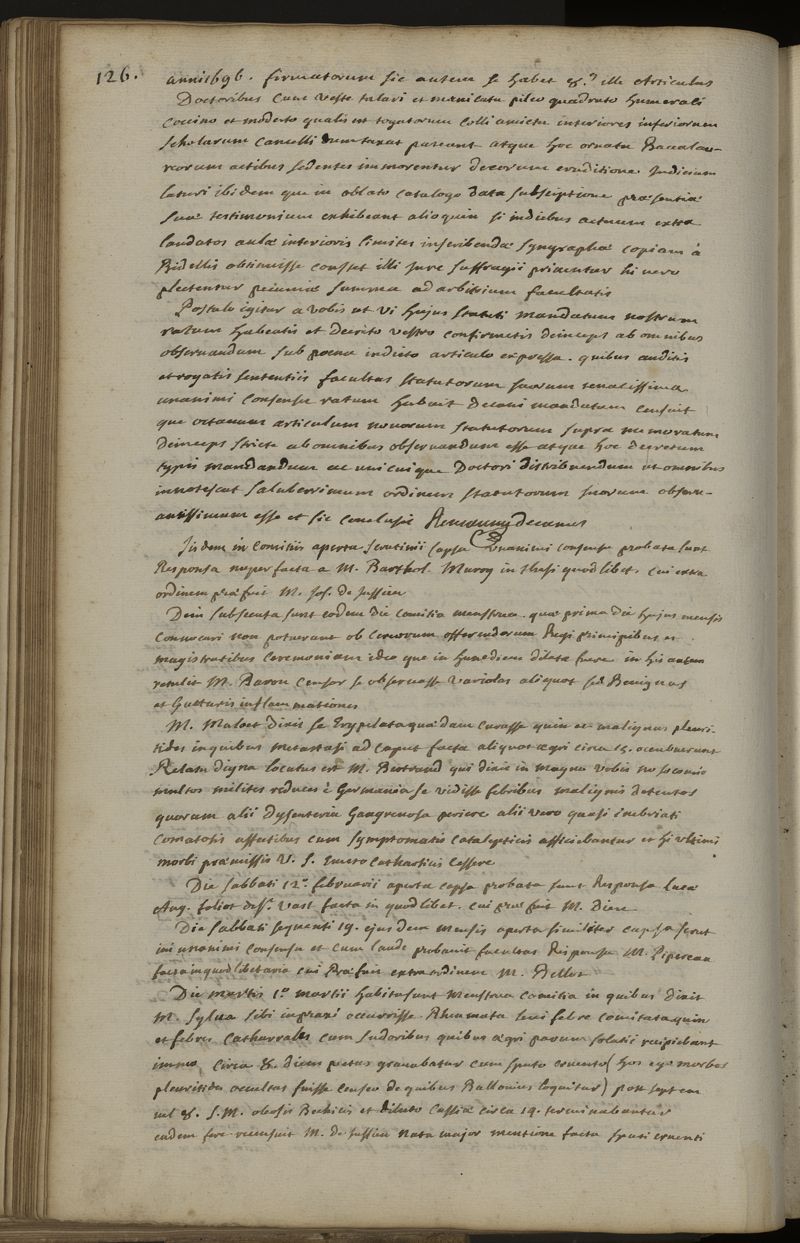 126.
anni 1696. firmatorum sic autem se habet 8.us ille Articulus
Doctoribus cum veste talari et manicata pileo quadrato humerali
coccino et modesto qualis est togatorum colli amictu interiores inferiorum
scholarum cancelli dumtaxat pateant atque hoc ornatu Baccalau-
reorum actibus sedentes immorentur decorum eruditione judicium
laturi ibidem que in oblato catalogo data subscriptione praesentiae
suae testimonium exhibeant alioquin si indiebus actuum extra
laudatos aulae interioris limites inscribendae syngraphae copiam a
Bidellis obtinuisse constet illi jure suffragii priventur hi vero
plectentur pecuniae summa ad arbitrium facultatis
Postulo igitur a vobis ut vi hujus statuti mandatum nostrum
ratum habeatis et decreto vestro confirmetis deinceps ab omnibus
observandum sub poena indicto articulo expressa. quibus auditis
et rogatis sententiis facultas statutorum suorum tenacissima
unanimi consensu ratum habuit Decani mandatum censuit
que octavum articulum novorum statutorum supra memoratum
deinceps stricte ab omnibus observandum esse atque hoc decretum
typis mandandum ac unicuique Doctori distribuendum ut omnibus
innotescat saluberrimum ordinem statutorum suorum observ-
antissimum esse et sic conclusit Decanus
Iisdem in comitiis aperta scrutinii capsa unanimi consensu probata sunt
Responsa nuper facta a M. Barthol. Murry in thesi quodlibet. cui extra
ordinem praefuit M. Jos. de Jussieu
Dein subsecuta sunt eodem die comitia menstrua quae prima die hujus mensis
convocari non potuerunt ob cereorum offerendorum Regi principibus et
magistratibus ceremoniam ideo que in hunc diem dilata fuere in his autem
retulit M. Baron censor se observasse variolas aliquot sed Benignas
et Gutturis inflammationes
M. Maloet dixit se Erysipelata quaedam curasse quin et malignas pleuri-
tides in quibus metastasi ad caput facta aliquot aegri circa 15. occubuerunt
Relatu digna locutus est M. Bertrand qui dixit in magno vobis nosocomio
multos milites reduces è Germania se vidisse febribus malignis detentos
quorum alii dysenteria Gangrenosa periere alii vero quasi inebriati
comatosis affectibus cum symptomatis catalepticis afficiebantur et hi ultimi
morbi praemissis V. S. Emeto catharticis cessere
Die sabbati 12.a februarii aperta capsa probata sunt Responsa luca
Aug. foliot de St. Vast facta in quodlibet. cui praefuit M. Dien
Die sabbati sequenti 19. ejusdem mensis aperta similiter capsa scrut
inii unanimi consensu et cum laude probavit facultas Responsa M. Pipereau
facta in quodlibetaria cui praefuit extra ordinem M. Bellot
Die martis 1.a martii habita sunt Menstrua Comitia in quibus dixit
M. Sylva sibi in praxi occurrisse Rheumata levi febre comitata quin
et febres catharrales cum sudoribus quibus aegri parum solatii recipiebant
immo circa 8. diem pectus gravabatur cum sputo cruento (hos ego morbos
pleuritides occultas fuisse censeo de quibus Ballonius loquitur) post septem
vel 8. S.M. oleosis Bechicis et diluto Cassiae circa 14. terminabantur
eadem fere recensuit M. de Jussieu natu major mentione facta sputi cruenti